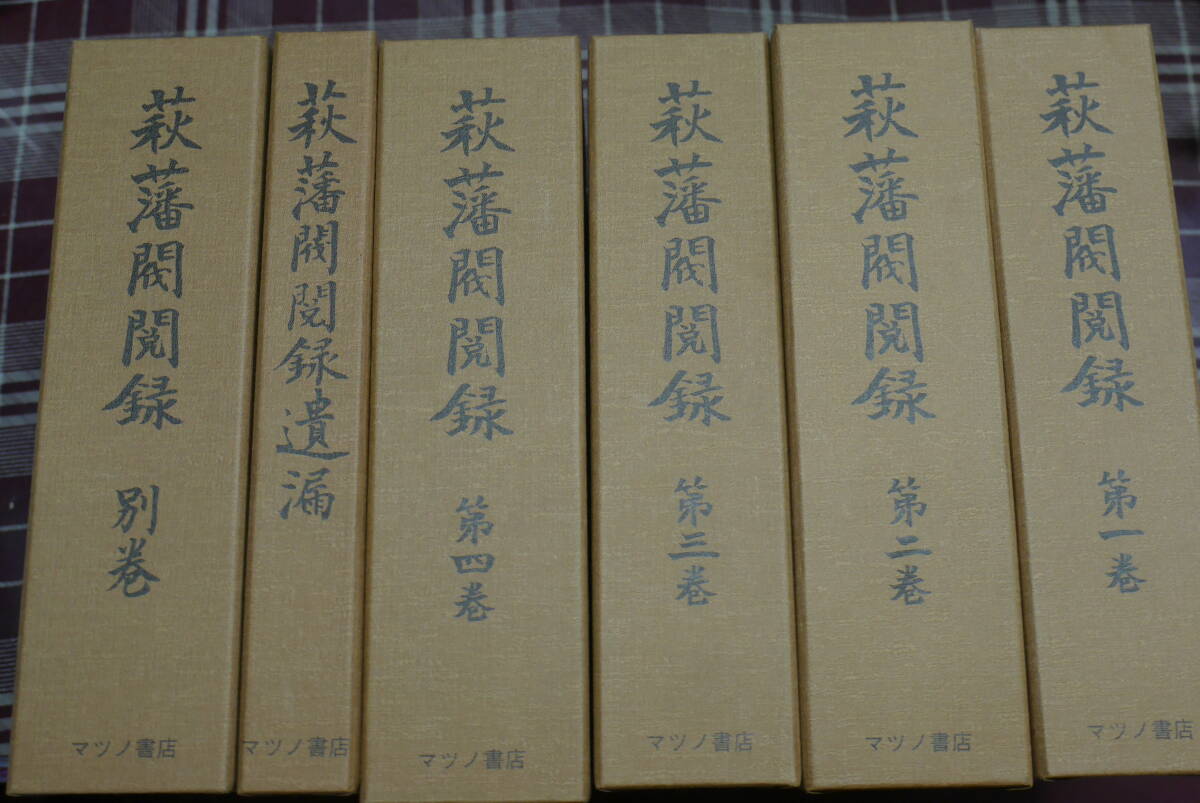 萩藩閥閲録 第一巻
マツノ書店
萩藩閥閲録 第二巻
マツノ書店
萩藩閥閲録 第三巻
マツノ書店
萩藩閥閲録 第四巻
マツノ書店
萩藩閥閲録遺漏
マツノ書店
萩藩閥閲録 別巻
マツノ書店